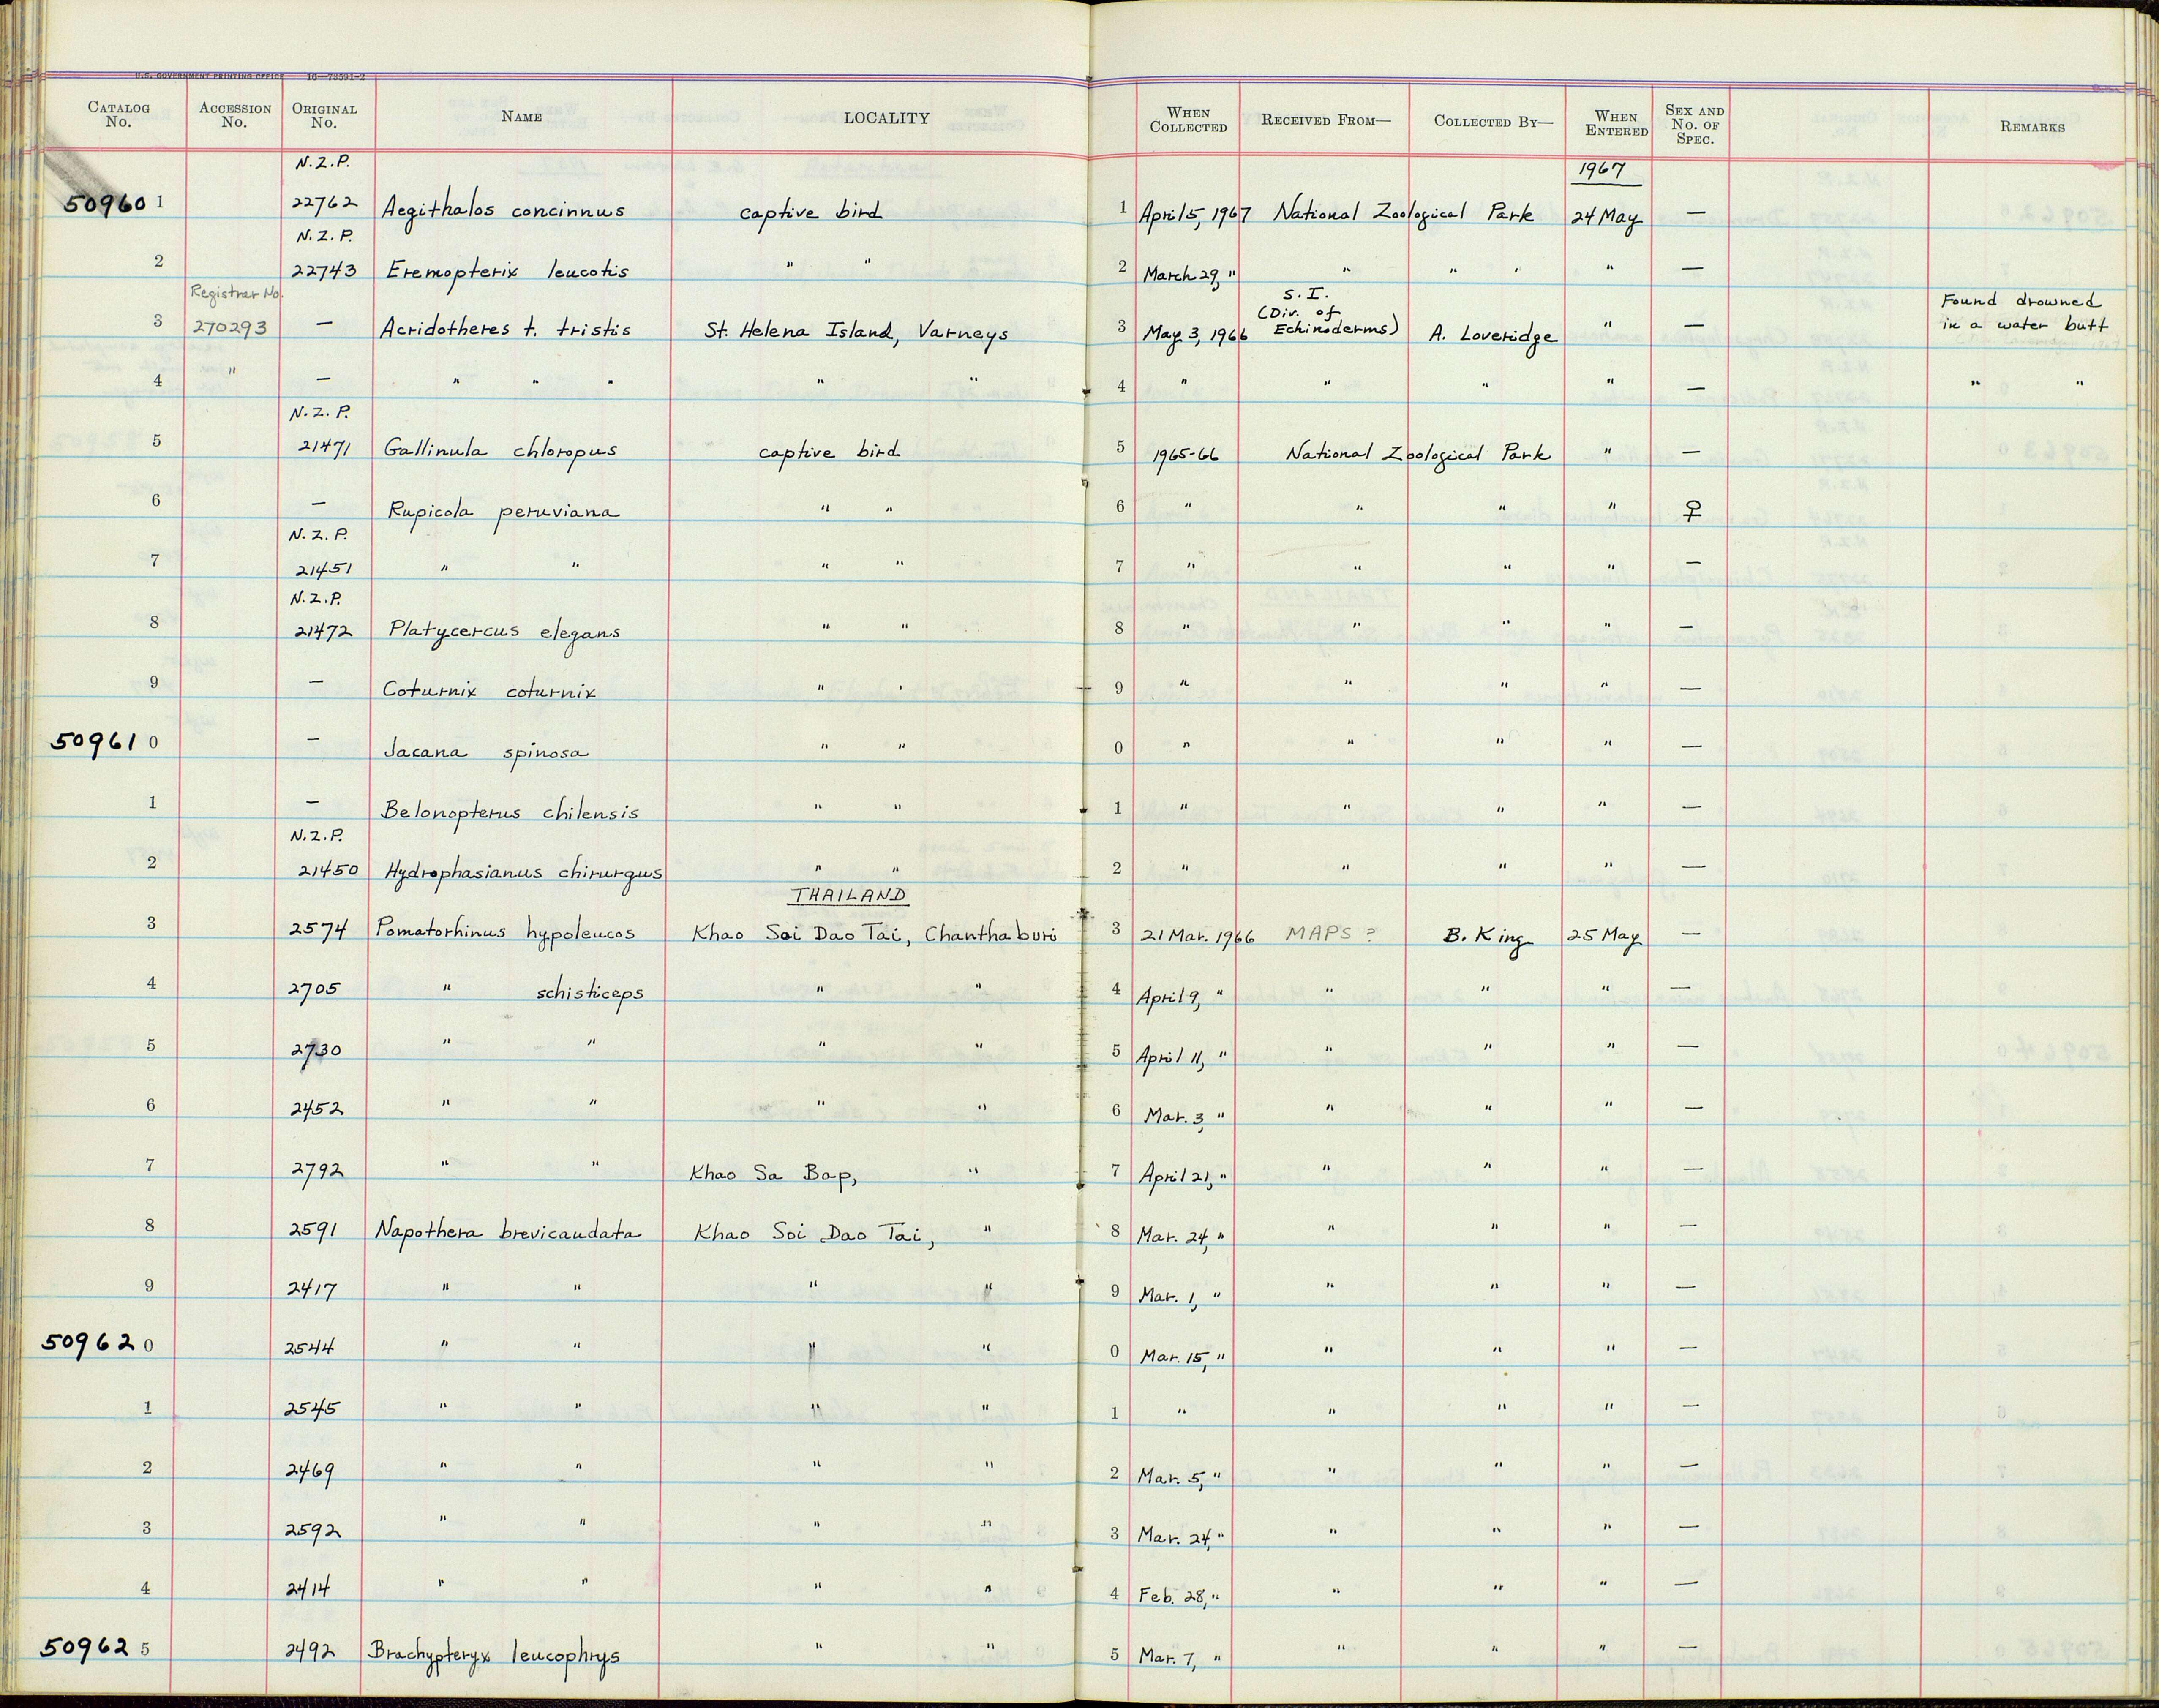 U.S. GOVERNMENT PRINTING OFFICE 16—73591-2
CATALOG No. ACCESSION No. ORIGINAL No. NAME LOCALITY WHEN COLLECTED RECEIVED FROM— COLLECTED BY— WHEN ENTERED SEX AND No. OF SPEC. REMARKS
N.Z.P. 1967
50960 1 22762 Aegithalos concinnus captive bird 1 April 5, 1967 National Zoological Park 24 May —
N.Z.P.
2 22743 Eremopterix leucotis " " 2 March 29, " " " " " —
Registrar No. S.I. (Div. of Found drowned
3 270293 — Acridotheres t. tristis St. Helena Island, Varneys 3 May 3, 1966 Echinoderms) A. Loveridge " — in a water butt
4 " — " " " " " 4 " " " " — " "
N.Z.P.
5 21471 Gallinula chloropus captive bird 5 1965-66 National Zoological Park " —
6 — Rupicola peruviana " " 6 " " " " ♀
N.Z.P.
7 21451 " " " " 7 " " " " —
N.Z.P.
8 21472 Platycercus elegans " " 8 " " " " —
9 — Coturnix coturnix " " 9 " " " " —
50961 0 — Jacana spinosa " " 0 " " " " —
1 — Belonopterus chilensis " " 1 " " " " —
N.Z.P.
2 21450 Hydrophasianus chirurgus " " 2 " " " " —
THAILAND
3 2574 Pomatorhinus hypoleucos Khao Soi Dao Tai, Chanthaburi 3 21 Mar. 1966 MAPS ? B. King 25 May —
4 2705 " schisticeps " " 4 April 9, " " " " —
5 2730 " " " " 5 April 11, " " " " —
6 2452 " " " " 6 Mar. 3, " " " " —
7 2792 " " Khao Sa Bap, " 7 April 21, " " " " —
8 2591 Napothera brevicaudata Khao Soi Dao Tai, " 8 Mar. 24, " " " " —
9 2417 " " " " 9 Mar. 1, " " " " —
50962 0 2544 " " " " 0 Mar. 15, " " " " —
1 2545 " " " " 1 " " " " —
2 2469 " " " " 2 Mar. 5, " " " " —
3 2592 " " " " 3 Mar. 24, " " " " —
4 2414 " " " " 4 Feb. 28, " " " " —
50962 5 2492 Brachypteryx leucophrys " " 5 Mar. 7, " " " " —